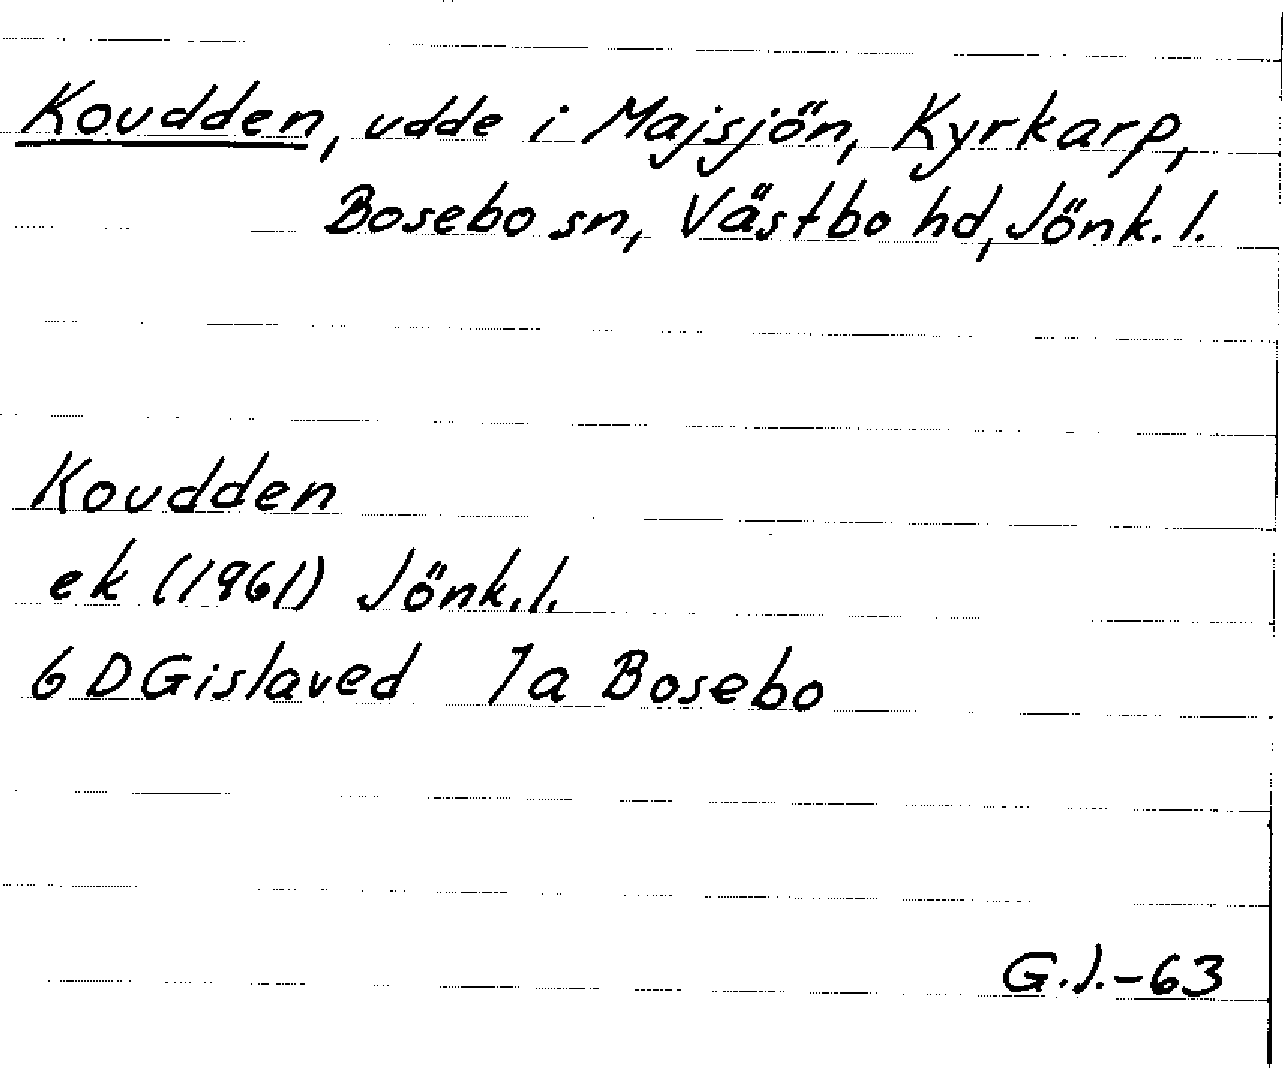 Koudden, udde i Majsjön, Kyrkarp,
Bosebo sn, Västbo hd, Jönk. l.
Koudden
ek (1961) Jönk. l.
6 D Gislaved 1a Bosebo
G.J.-63